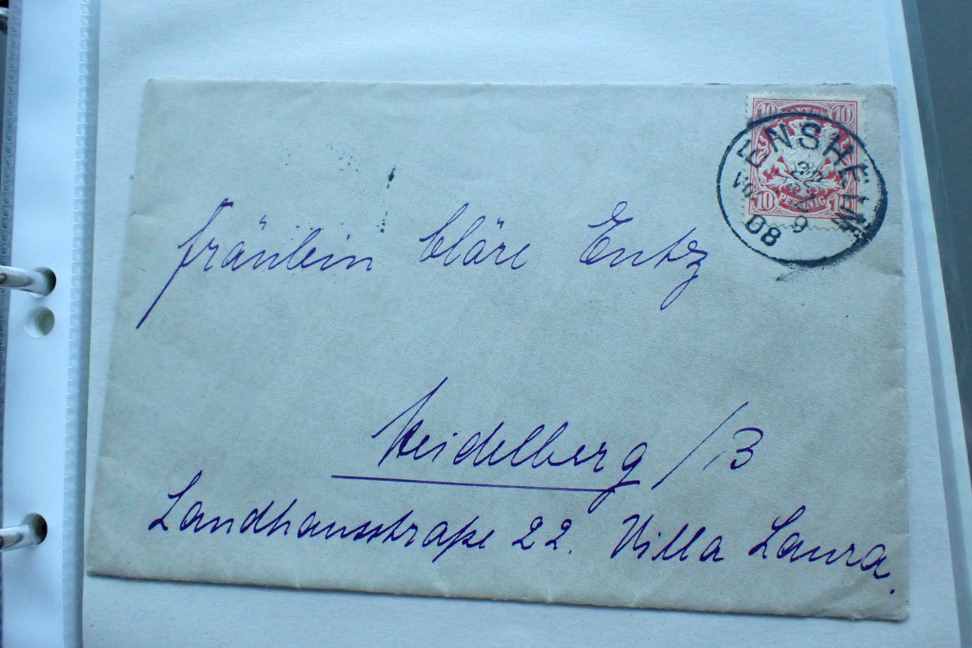 10 10
ENSHEIM
10 PFENNIG 10
08
Fräulein Cläre Entz
Heidelberg / B
Landhausstraße 22. Villa Laura.